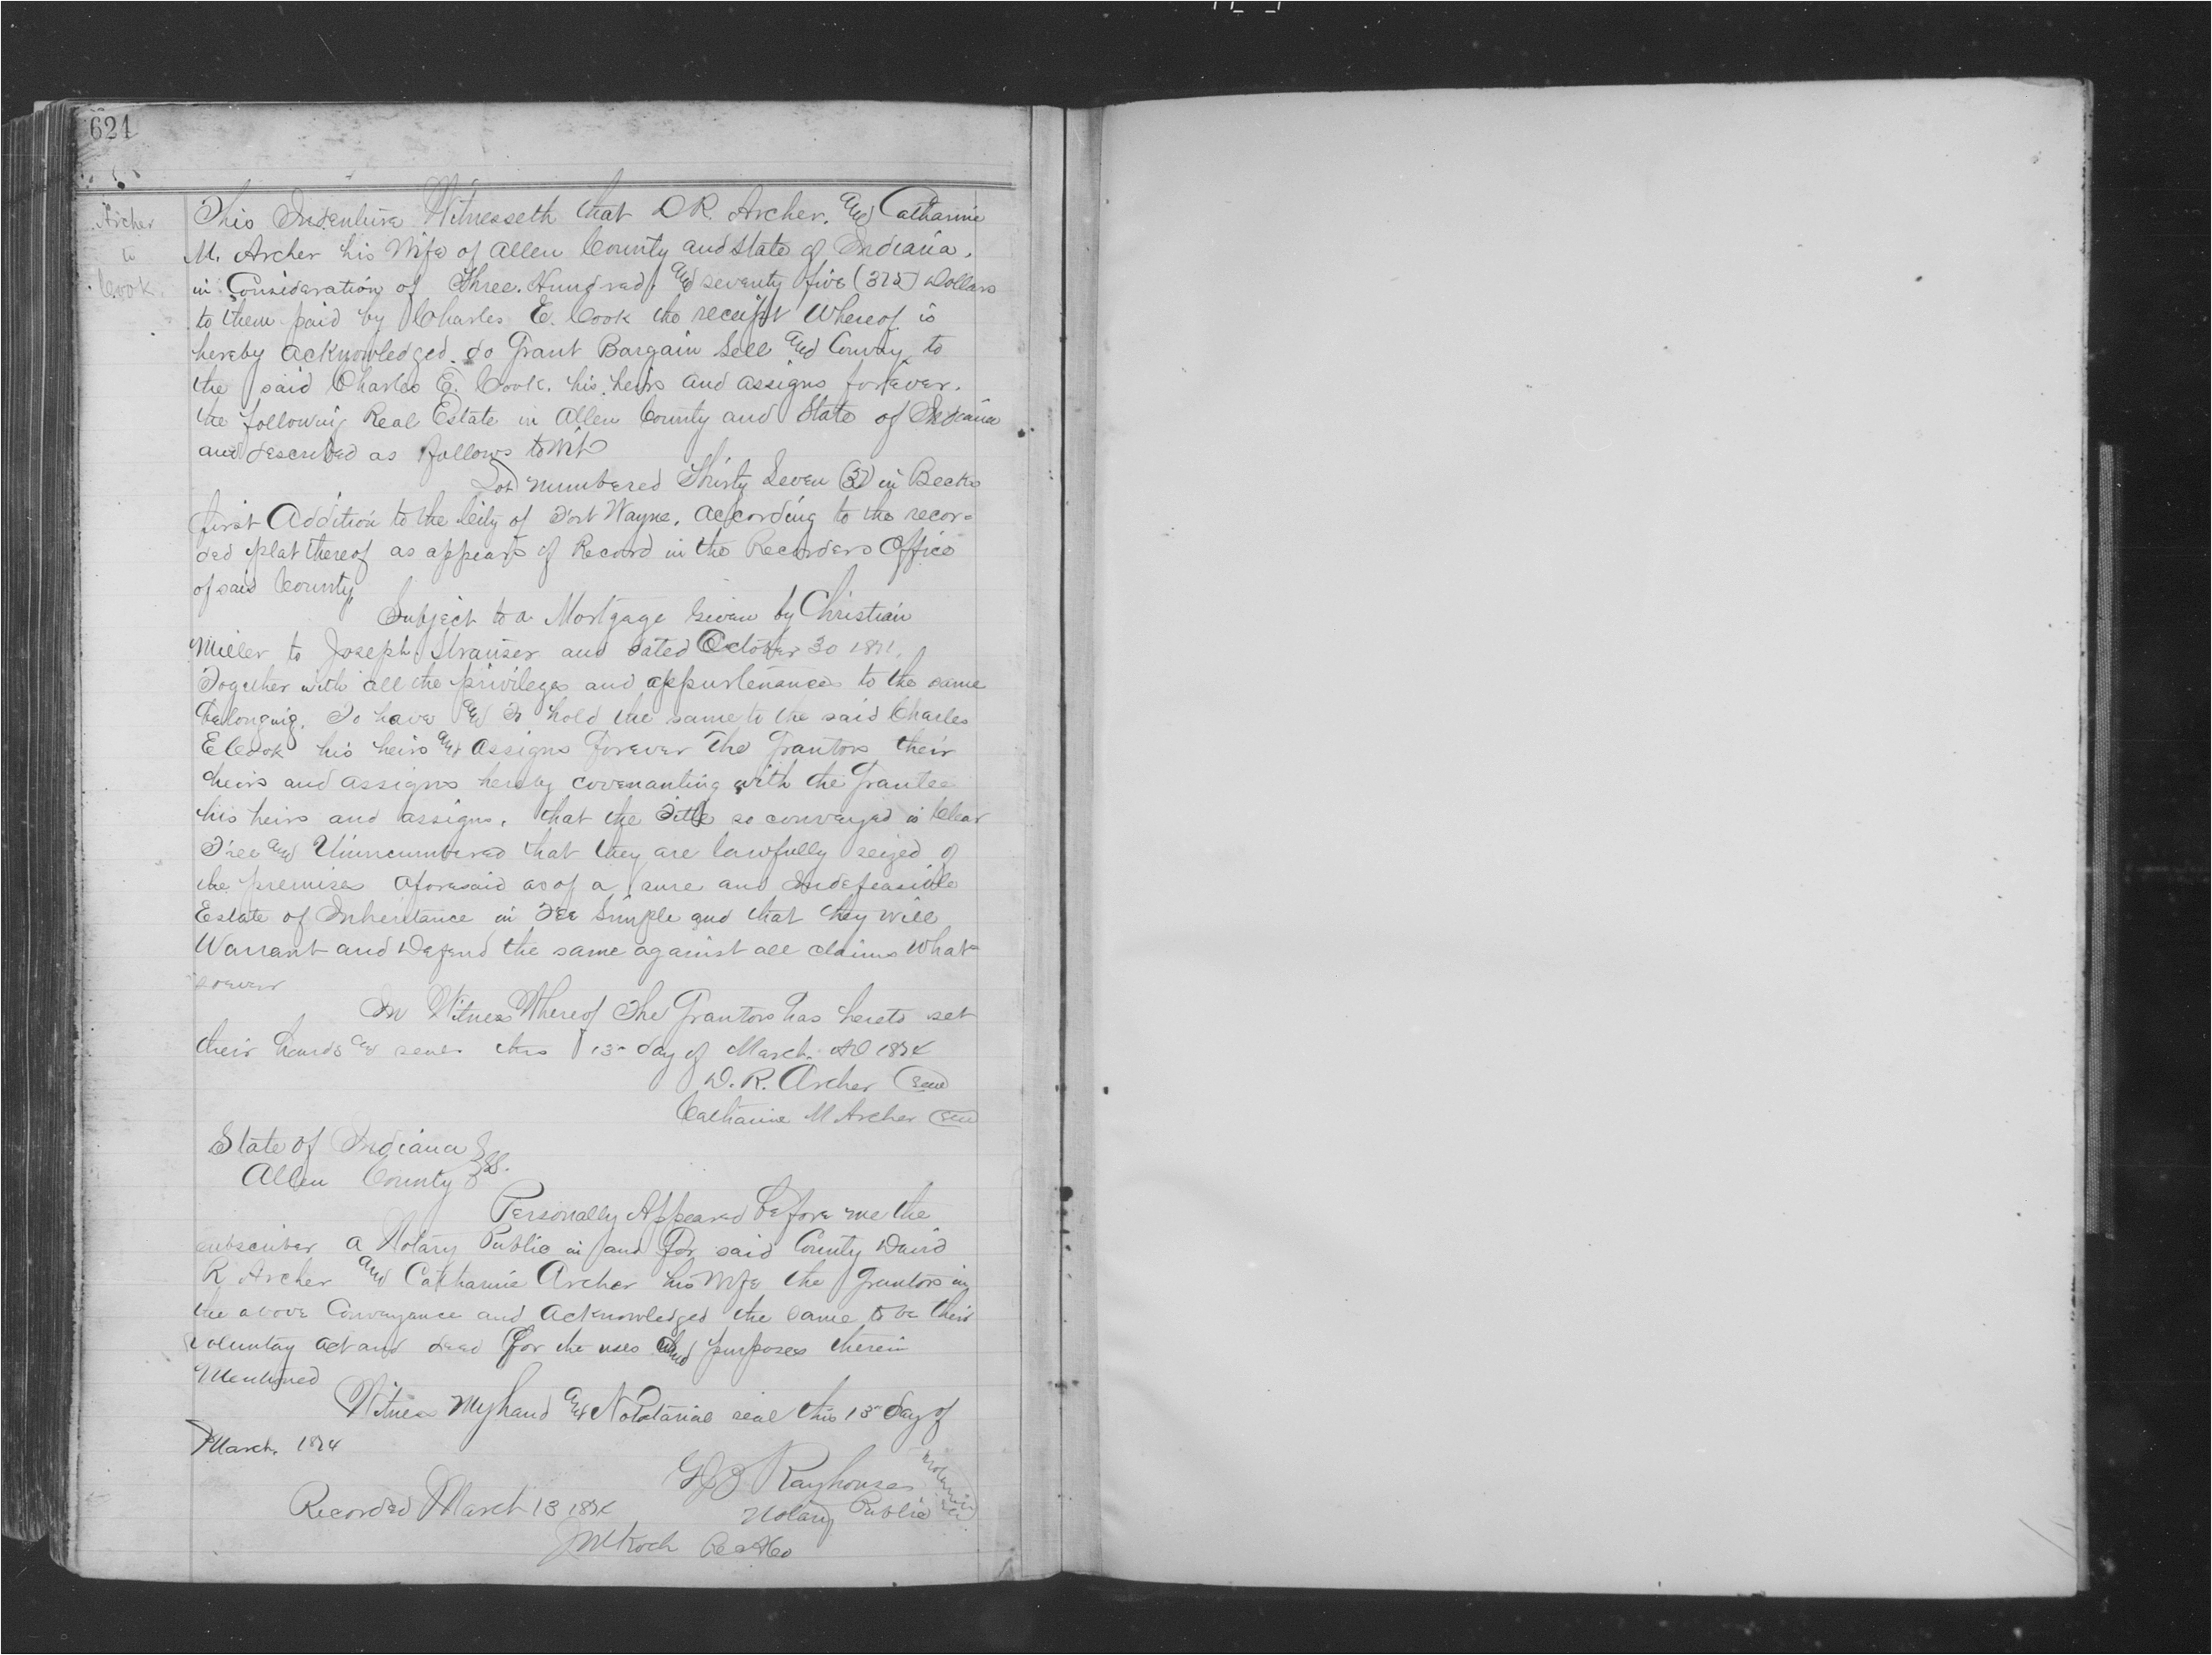 624
Archer
to
Cook
This Indenture Witnesseth that D R. Archer. and Catharine
M. Archer his Wife of Allen County and State of Indiana.
in Consideration of Three Hundred and seventy five (375) Dollars
to them paid by Charles E. Cook the receipt Whereof is
hereby acknowledged do Grant Bargain Sell and Convey to
the said Charles E. Cook. his heirs and assigns forever.
the following Real Estate in Allen County and State of Indiana
and described as follows to Wit
Lot numbered Thirty Seven (37) in Becks
first Addition to the City of Fort Wayne, according to the recor=
ded plat thereof as appears of Record in the Recorders Office
of said County
Subject to a Mortgage Given by Christian
Miller to Joseph Strauser and dated October 30 1871.
Together with all the privileges and appurtenances to the same
belonging. To have and to hold the same to the said Charles
E Cook his heirs and assigns forever The Grantors their
heirs and assigns hereby covenanting with the Grantee
his heirs and assigns, that the Title so conveyed is Clear
Free and Unincumbered that they are lawfully seized of
the premises aforesaid as of a sure and Indefeasible
Estate of Inheritance in Fee Simple and that they will
Warrant and Defend the same against all claims What=
soever
In Witness Whereof The Grantors has hereto set
their hands and seals this 13" day of March. AD 1874
D. R. Archer Seal
Catharine M Archer Seal
State of Indiana } SS.
Allen County }
Personally Appeared before me the
subscriber a Notary Public in and For said County David
R Archer and Catharine Archer his Wife the Grantors in
the above Conveyance and Acknowledged the same to be their
voluntary act and deed for the uses and purposes therein
Mentioned
Witness My hand and Notatarial seal this 13" day of
March. 1874
Rayhouser
Notary Public
Notarial
Seal
Recorded March 13 1874
J M Koch